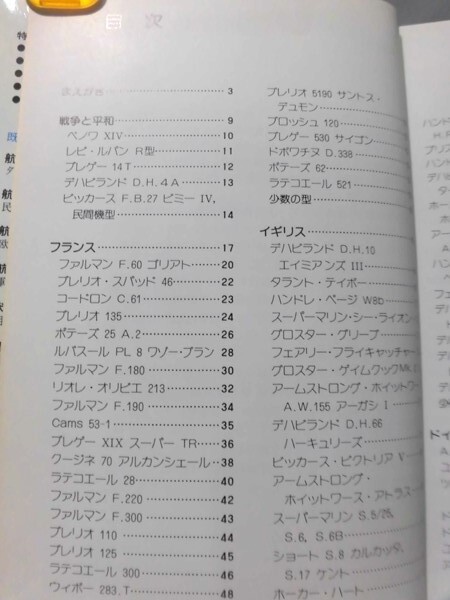 目次
まえがき 3
戦争と平和 9
ベノワ XIV 10
レビ・ルパン R型 11
ブレゲー 14T 12
デハビランド D.H.4A 13
ビッカース F.B.27 ビミー IV,
民間機型 14
フランス 17
ファルマン F.60 ゴリアト 20
ブレリオ・スパッド 46 22
コードロン C.61 23
ブレリオ 135 24
ポテーズ 25 A.2 26
ルバスール PL 8 ワゾー・ブラン 28
ファルマン F.180 30
リオレ・オリビエ 213 32
ファルマン F.190 34
Cams 53-1 35
ブレゲー XIX スーパー TR 36
クージネ 70 アルカンシェール 38
ラテコエール 28 40
ファルマン F.220 42
ファルマン F.300 43
ブレリオ 110 44
ブレリオ 125 45
ラテコエール 300 46
ウィボー 283.T 48
ブレリオ 5190 サントス・
デュモン
ブロッシュ 120
ブレゲー 530 サイゴン
ドボワチヌ D.338
ポテーズ 62
ラテコエール 521
少数の型
イギリス
デハビランド D.H.10
エイミアンズ III
タラント・テイボー
ハンドレ・ページ W8b
スーパーマリン・シー・ライオン
グロスター・グリーブ
フェアリー・フライキャッチャー
グロスター・ゲイムコック Mk.
アームストロング・ホイットワー
A.W.155 アーガシ I
デハビランド D.H.66
ハーキュリーズ
ビッカース・ビクトリア V
アームストロング・
ホイットワース・アトラス
スーパーマリン S.5/25,
S.6, S.6B
ショート S.8 カルカッタ,
S.17 ケント
ホーカー・ハート